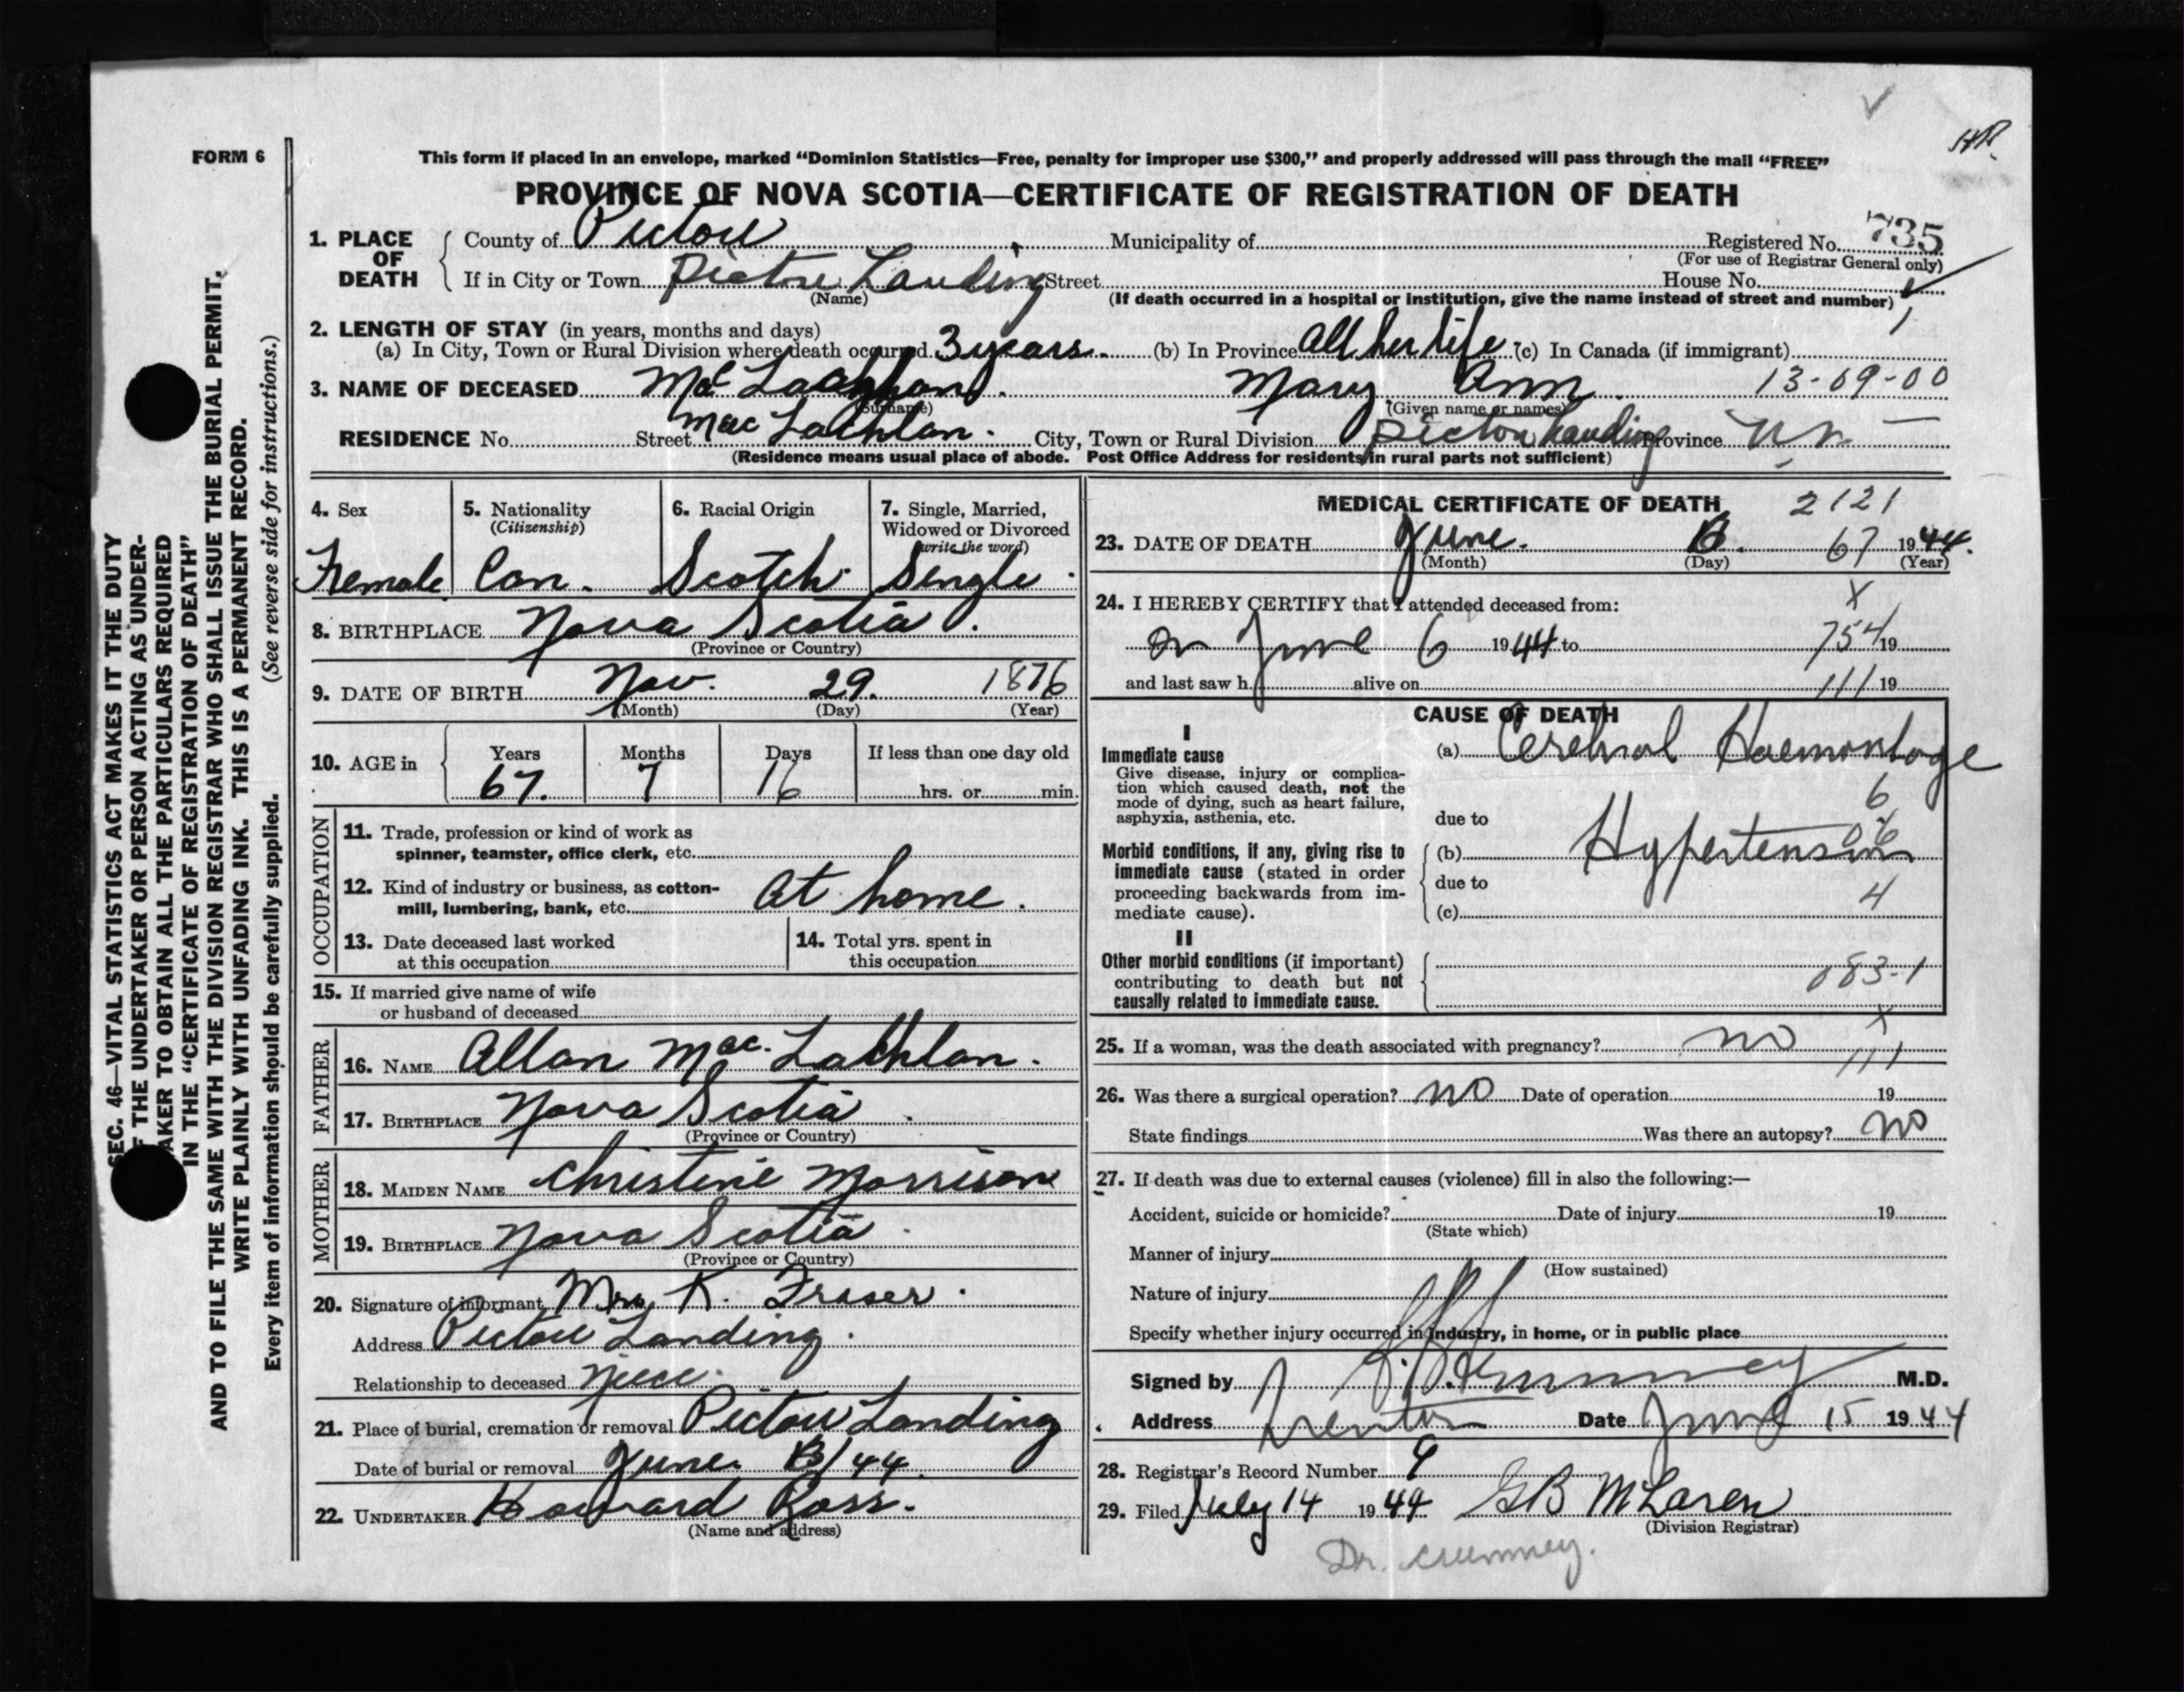 FORM 6
This form if placed in an envelope, marked “Dominion Statistics—Free, penalty for improper use $300,” and properly addressed will pass through the mail “FREE”
PROVINCE OF NOVA SCOTIA—CERTIFICATE OF REGISTRATION OF DEATH
1. PLACE OF DEATH County of Pictou Municipality of Registered No. 735
(For use of Registrar General only)
If in City or Town Pictou Landing Street House No.
(Name) (If death occurred in a hospital or institution, give the name instead of street and number)
1
2. LENGTH OF STAY (in years, months and days)
(a) In City, Town or Rural Division where death occurred 3 years (b) In Province All her life (c) In Canada (if immigrant)
3. NAME OF DECEASED Mary Ann 13-09-00
(Surname) (Given name or names)
Mac Lachlan
RESIDENCE No. Street City, Town or Rural Division Pictou Landing Province
(Residence means usual place of abode. Post Office Address for residents in rural parts not sufficient)
4. Sex 5. Nationality (Citizenship) 6. Racial Origin 7. Single, Married, Widowed or Divorced (write the word)
Female Can. Scotch Single
8. BIRTHPLACE Nova Scotia
(Province or Country)
9. DATE OF BIRTH Nov. 29. 1876
(Month) (Day) (Year)
10. AGE in Years Months Days If less than one day old
67. 7 16 hrs. or min.
OCCUPATION
11. Trade, profession or kind of work as
spinner, teamster, office clerk, etc.
12. Kind of industry or business, as cotton-
mill, lumbering, bank, etc. At home.
13. Date deceased last worked
at this occupation
14. Total yrs. spent in
this occupation
15. If married give name of wife
or husband of deceased
FATHER
16. NAME Allan Mac. Lachlan.
17. BIRTHPLACE Nova Scotia
(Province or Country)
MOTHER
18. MAIDEN NAME Christine Morrison
19. BIRTHPLACE Nova Scotia
(Province or Country)
20. Signature of informant Mrs K. Fraser
Address Pictou Landing.
Relationship to deceased Niece.
21. Place of burial, cremation or removal Pictou Landing
Date of burial or removal June /44
22. UNDERTAKER Howard Ross.
(Name and address)
MEDICAL CERTIFICATE OF DEATH 2121
23. DATE OF DEATH June. 67 1944.
(Month) (Day) (Year)
24. I HEREBY CERTIFY that I attended deceased from: X
on June 6 1944 to 754 19
and last saw h alive on 111 19
CAUSE OF DEATH
I
Immediate cause
Give disease, injury or complica-
tion which caused death, not the
mode of dying, such as heart failure,
asphyxia, asthenia, etc.
(a) Cerebral Haemorrhage
6
due to
Morbid conditions, if any, giving rise to
immediate cause (stated in order
proceeding backwards from im-
mediate cause).
(b) Hypertension
due to
4
(c)
II
Other morbid conditions (if important)
contributing to death but not
causally related to immediate cause.
083-1
X
25. If a woman, was the death associated with pregnancy? no
111
26. Was there a surgical operation? no Date of operation 19
State findings Was there an autopsy? no
27. If death was due to external causes (violence) fill in also the following:—
Accident, suicide or homicide? Date of injury 19
(State which)
Manner of injury
(How sustained)
Nature of injury
Specify whether injury occurred in industry, in home, or in public place
Signed by M.D.
Address Trenton Date June 15 1944
28. Registrar's Record Number 9
29. Filed July 14 1944 GB McLaren
(Division Registrar)
Dr. Crummey.
SEC. 46—VITAL STATISTICS ACT MAKES IT THE DUTY
OF THE UNDERTAKER OR PERSON ACTING AS UNDER-
TAKER TO OBTAIN ALL THE PARTICULARS REQUIRED
IN THE “CERTIFICATE OF REGISTRATION OF DEATH”
AND TO FILE THE SAME WITH THE DIVISION REGISTRAR WHO SHALL ISSUE THE BURIAL PERMIT.
WRITE PLAINLY WITH UNFADING INK. THIS IS A PERMANENT RECORD.
Every item of information should be carefully supplied. (See reverse side for instructions.)